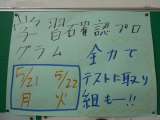 学習確認プロ
グラム
全力で
テストに取り
組も〜!!
5/21
月
5/22
火